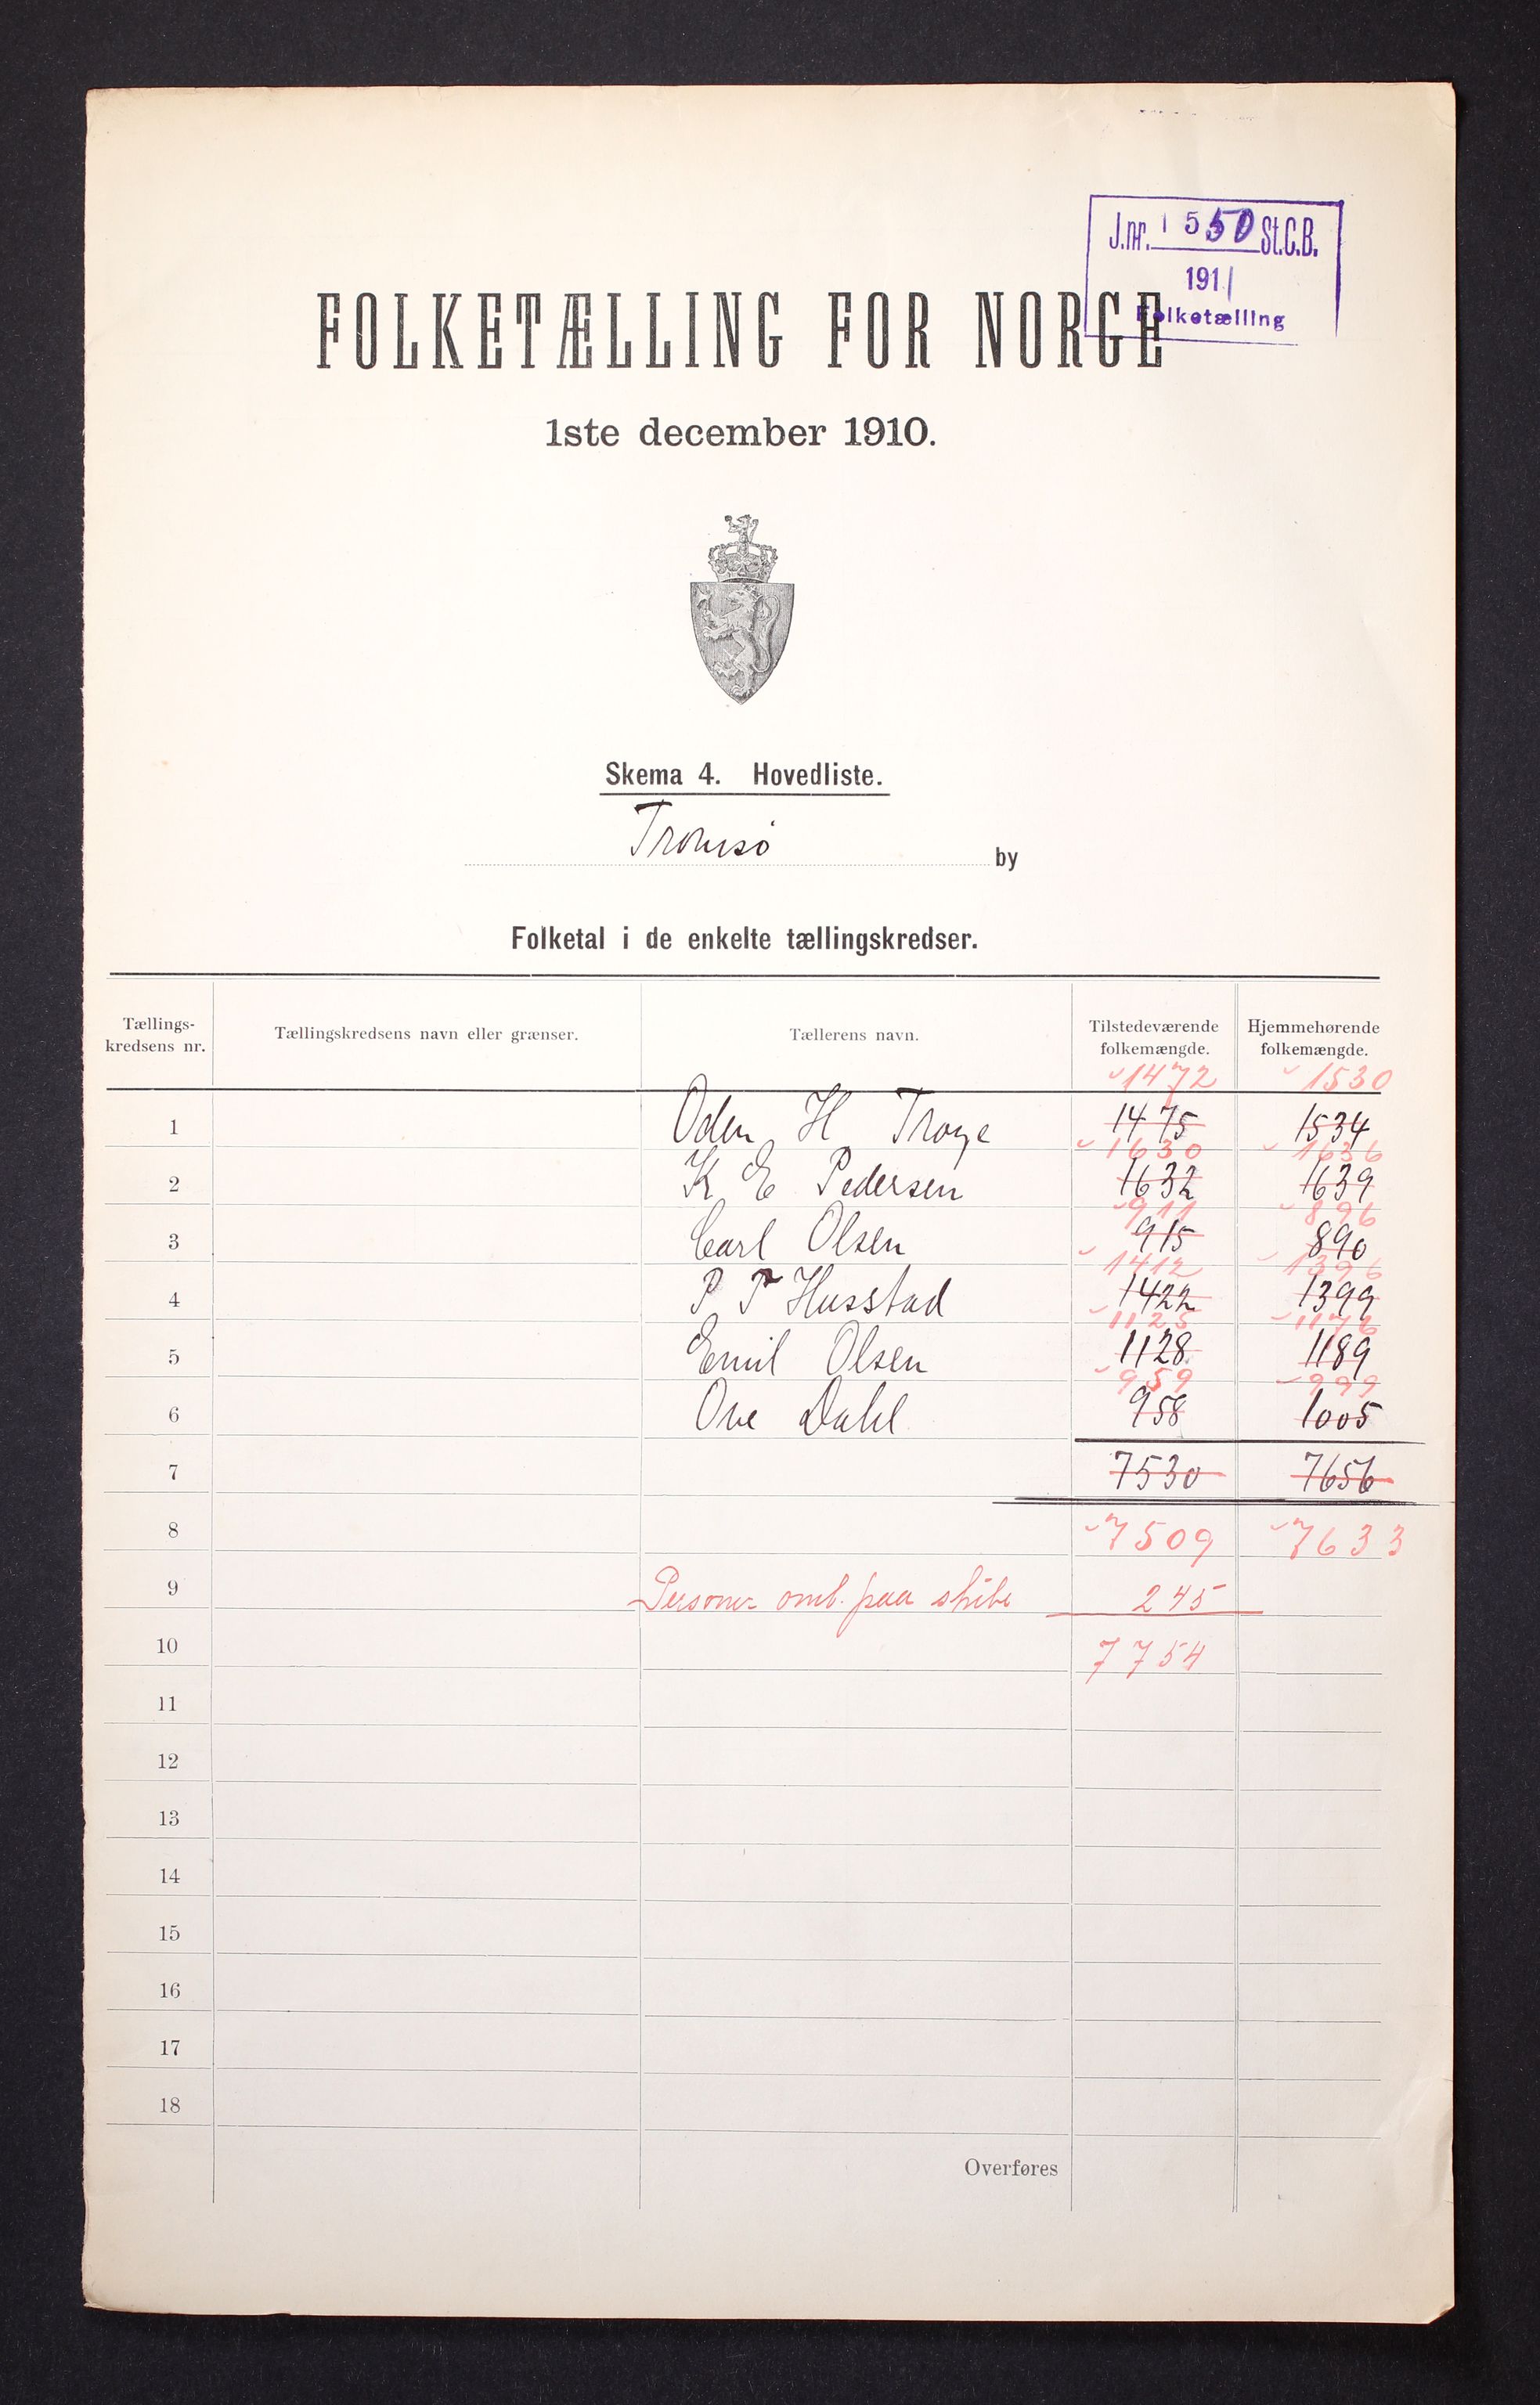 J.nr. 1550 St.C.B.
1911
Folketælling
FOLKETÆLLING FOR NORGE
1ste december 1910.
Skema 4. Hovedliste.
Tromsø by
Folketal i de enkelte tællingskredser.
Tællings-kredsens nr. Tællingskredsens navn eller grænser. Tællerens navn. Tilstedeværende folkemængde. Hjemmehørende folkemængde.
1472 1530
1 Oden H Troye 1475 1534
1630 1636
2 K E Pedersen 1632 1639
911 896
3 Carl Olsen 915 890
1412 1396
4 P T Husstad 1422 1399
1125 1176
5 Emil Olsen 1128 1189
959 999
6 Ove Dahl 958 1005
7 7530 7656
8 7509 7633
9 Personer omb. paa skibe 245
10 7754
11
12
13
14
15
16
17
18
Overføres